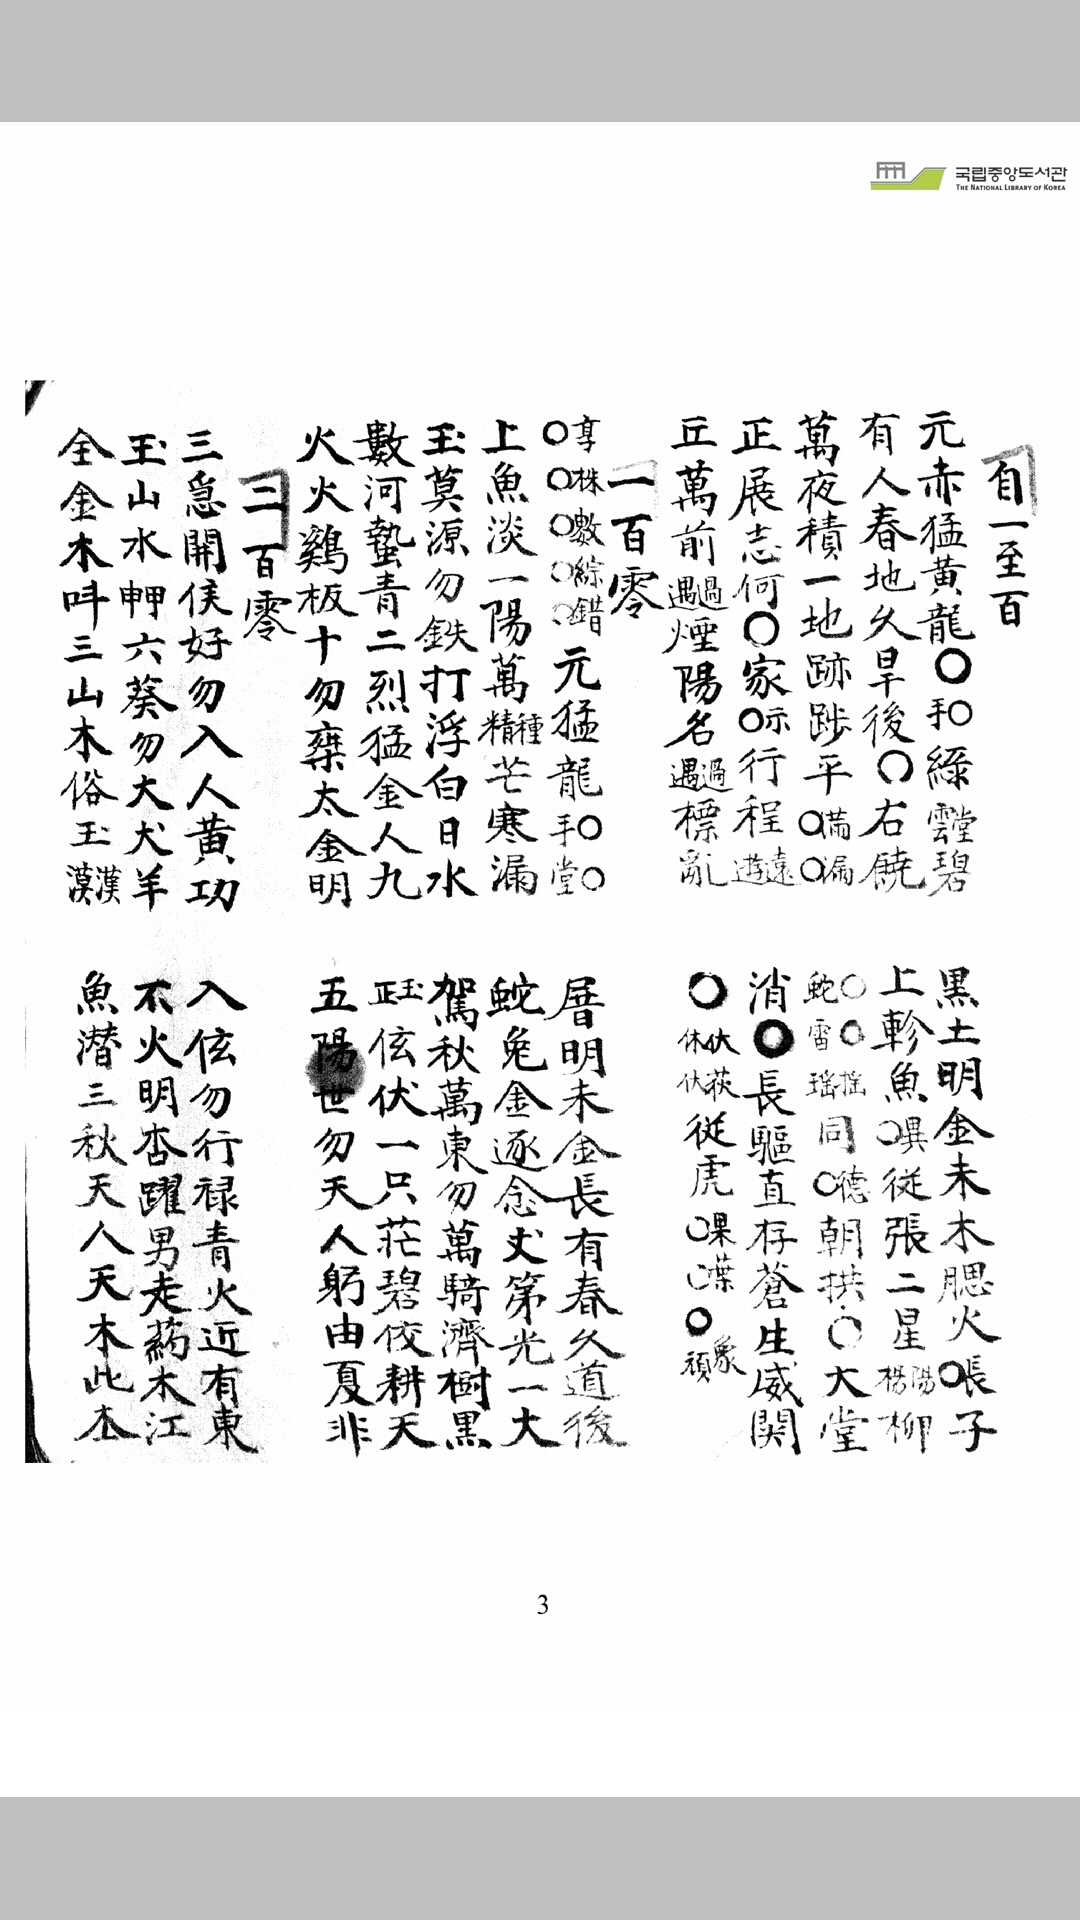 국립중앙도서관
THE NATIONAL LIBRARY OF KOREA
自一至百
元赤猛黃龍〇手〇綠雲堂碧
有人春地久旱後〇右饒
萬夜積一地跡陟平〇滿〇漏
正展志何〇家〇示行程遊遠
丘萬前遇過煙陽名遇過標亂
黑土明金未木腮火〇張子
上軫魚〇異從張二星楊陽柳
蛇〇雷〇瑤搖同〇德朝拱〇大堂
消〇長驅直存蒼生威関
〇休伏伏荻從虎〇果〇葉〇頑象
一百零
〇享〇株〇數〇綜〇錯元猛龍手〇堂〇
上魚淡一陽萬精種芒寒漏
玉莫源勿鉄打浮白日水
數河蟄青二烈猛金人九
火火鷄板十勿棄太金明
層明未金長有春久道後
蛇兔金逐念丈第光一大
駕秋萬東勿萬騎濟樹黑
正玉伭伏一只茫碧佼耕天
五陽世勿天人躬由夏非
二百零
三急開侯好勿入人黃功
玉山水呷六葵勿大犬羊
全金木呌三山木俗玉漠漢
入伭勿行祿青火近有東
不火明杏躍男走药木江
魚潛三秋天人天木此木
3